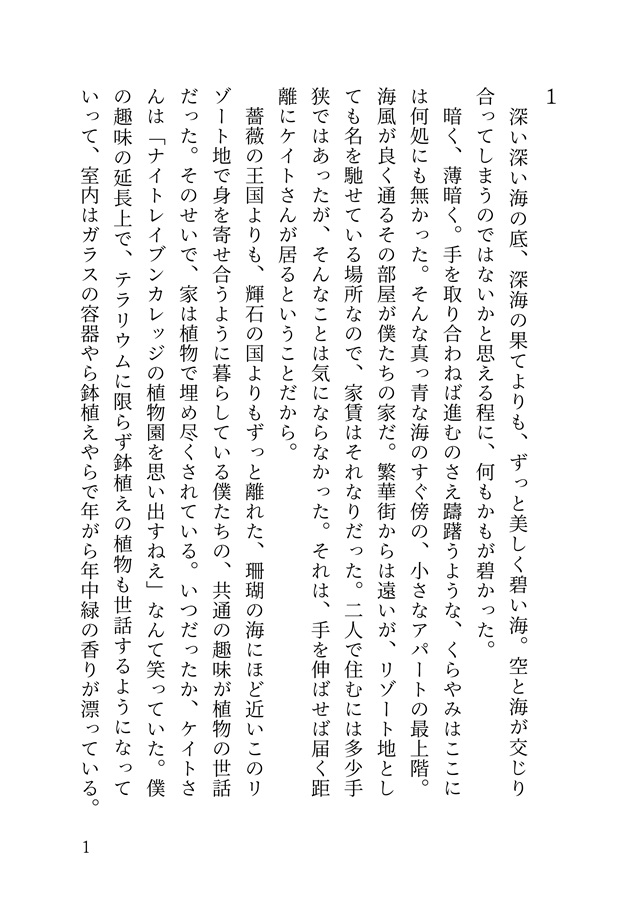 1
深い深い海の底、深海の果てよりも、ずっと美しく碧い海。空と海が交じり
合ってしまうのではないかと思える程に、何もかもが碧かった。
暗く、薄暗く。手を取り合わねば進むのさえ躊躇うような、くらやみはここに
は何処にも無かった。そんな真っ青な海のすぐ傍の、小さなアパートの最上階。
海風が良く通るその部屋が僕たちの家だ。繁華街からは遠いが、リゾート地とし
ても名を馳せている場所なので、家賃はそれなりだった。二人で住むには多少手
狭ではあったが、そんなことは気にならなかった。それは、手を伸ばせば届く距
離にケイトさんが居るということだから。
薔薇の王国よりも、輝石の国よりもずっと離れた、珊瑚の海にほど近いこのリ
ゾート地で身を寄せ合うように暮らしている僕たちの、共通の趣味が植物の世話
だった。そのせいで、家は植物で埋め尽くされている。いつだったか、ケイトさ
んは「ナイトレイブンカレッジの植物園を思い出すねえ」なんて笑っていた。僕
の趣味の延長上で、テラリウムに限らず鉢植えの植物も世話するようになって
いって、室内はガラスの容器やら鉢植えやらで年がら年中緑の香りが漂っている。
1